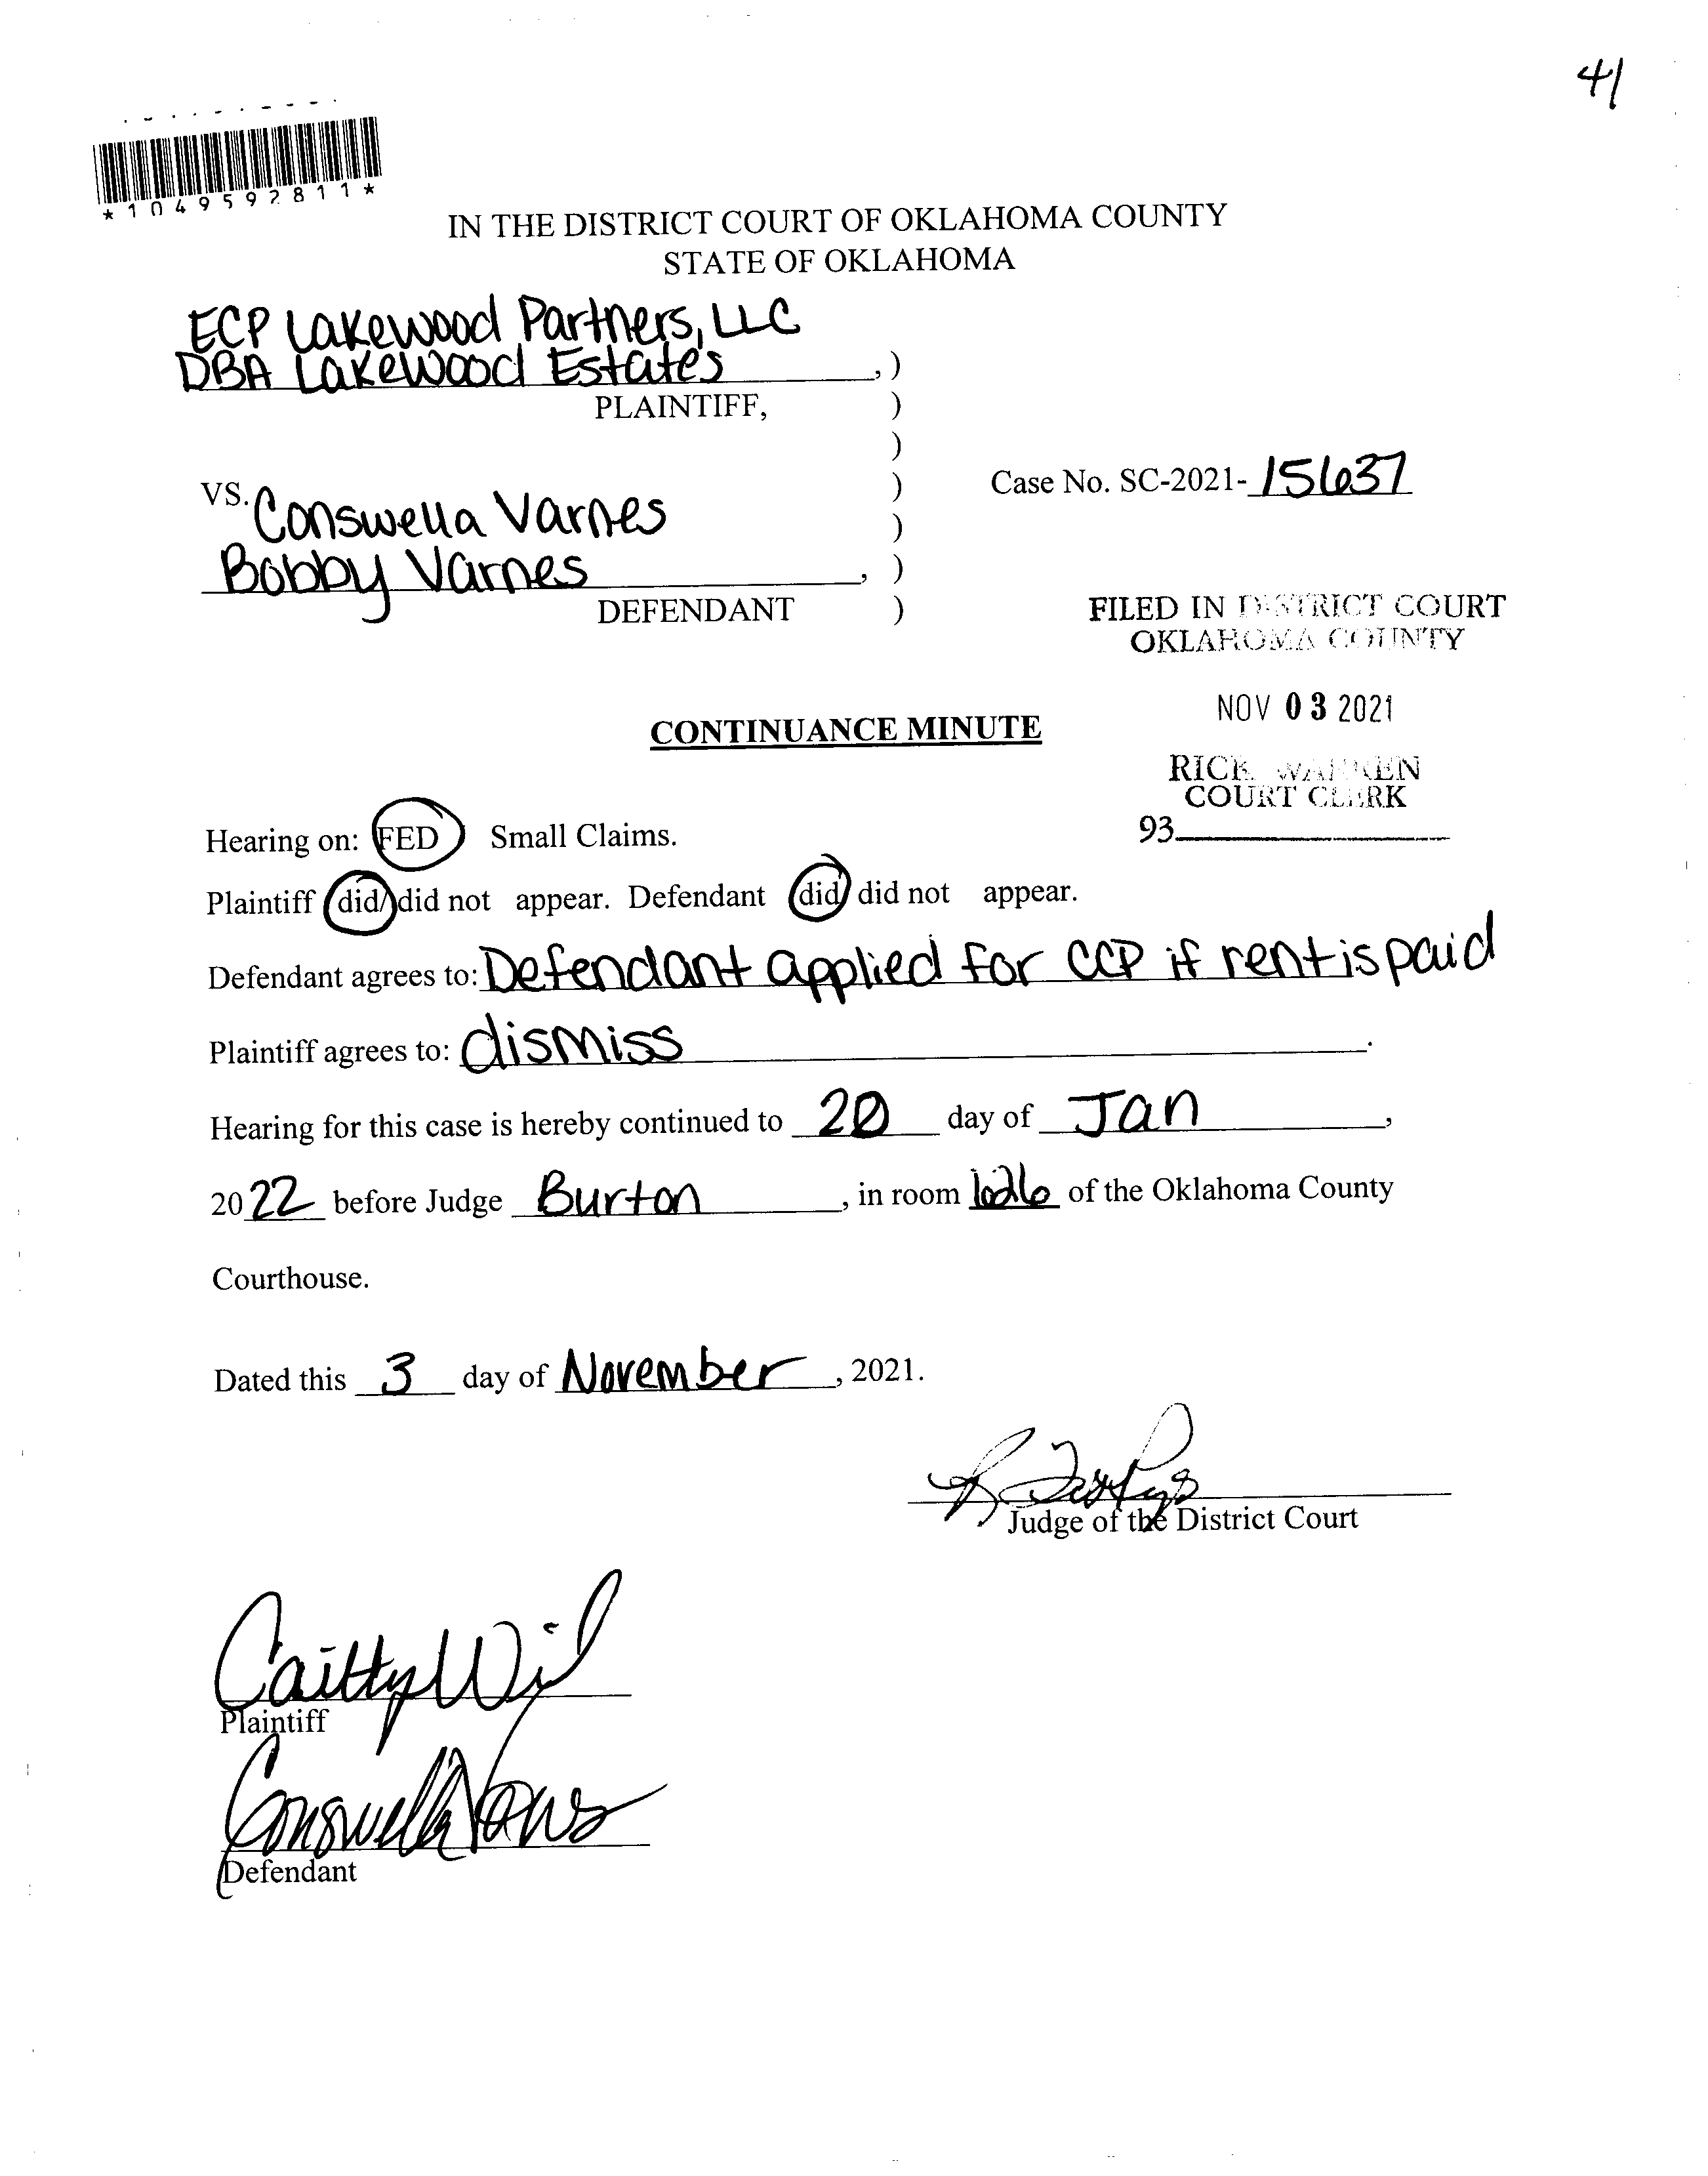 41
*1049592811*
IN THE DISTRICT COURT OF OKLAHOMA COUNTY
STATE OF OKLAHOMA
ECP Lakewood Partners, LLC
DBA Lakewood Estates, )
PLAINTIFF, )
)
VS. ) Case No. SC-2021-15637
Conswella Varnes )
Bobby Varnes, )
DEFENDANT )
FILED IN DISTRICT COURT
OKLAHOMA COUNTY
NOV 03 2021
CONTINUANCE MINUTE
RICK WARREN
COURT CLERK
93
Hearing on: FED Small Claims.
Plaintiff did/did not appear. Defendant did/did not appear.
Defendant agrees to: Defendant applied for CCP if rent is paid
Plaintiff agrees to: dismiss.
Hearing for this case is hereby continued to 20 day of Jan,
2022 before Judge Burton, in room of the Oklahoma County
Courthouse.
Dated this 3 day of November, 2021.
Judge of the District Court
Plaintiff
Conswella Varnes
Defendant